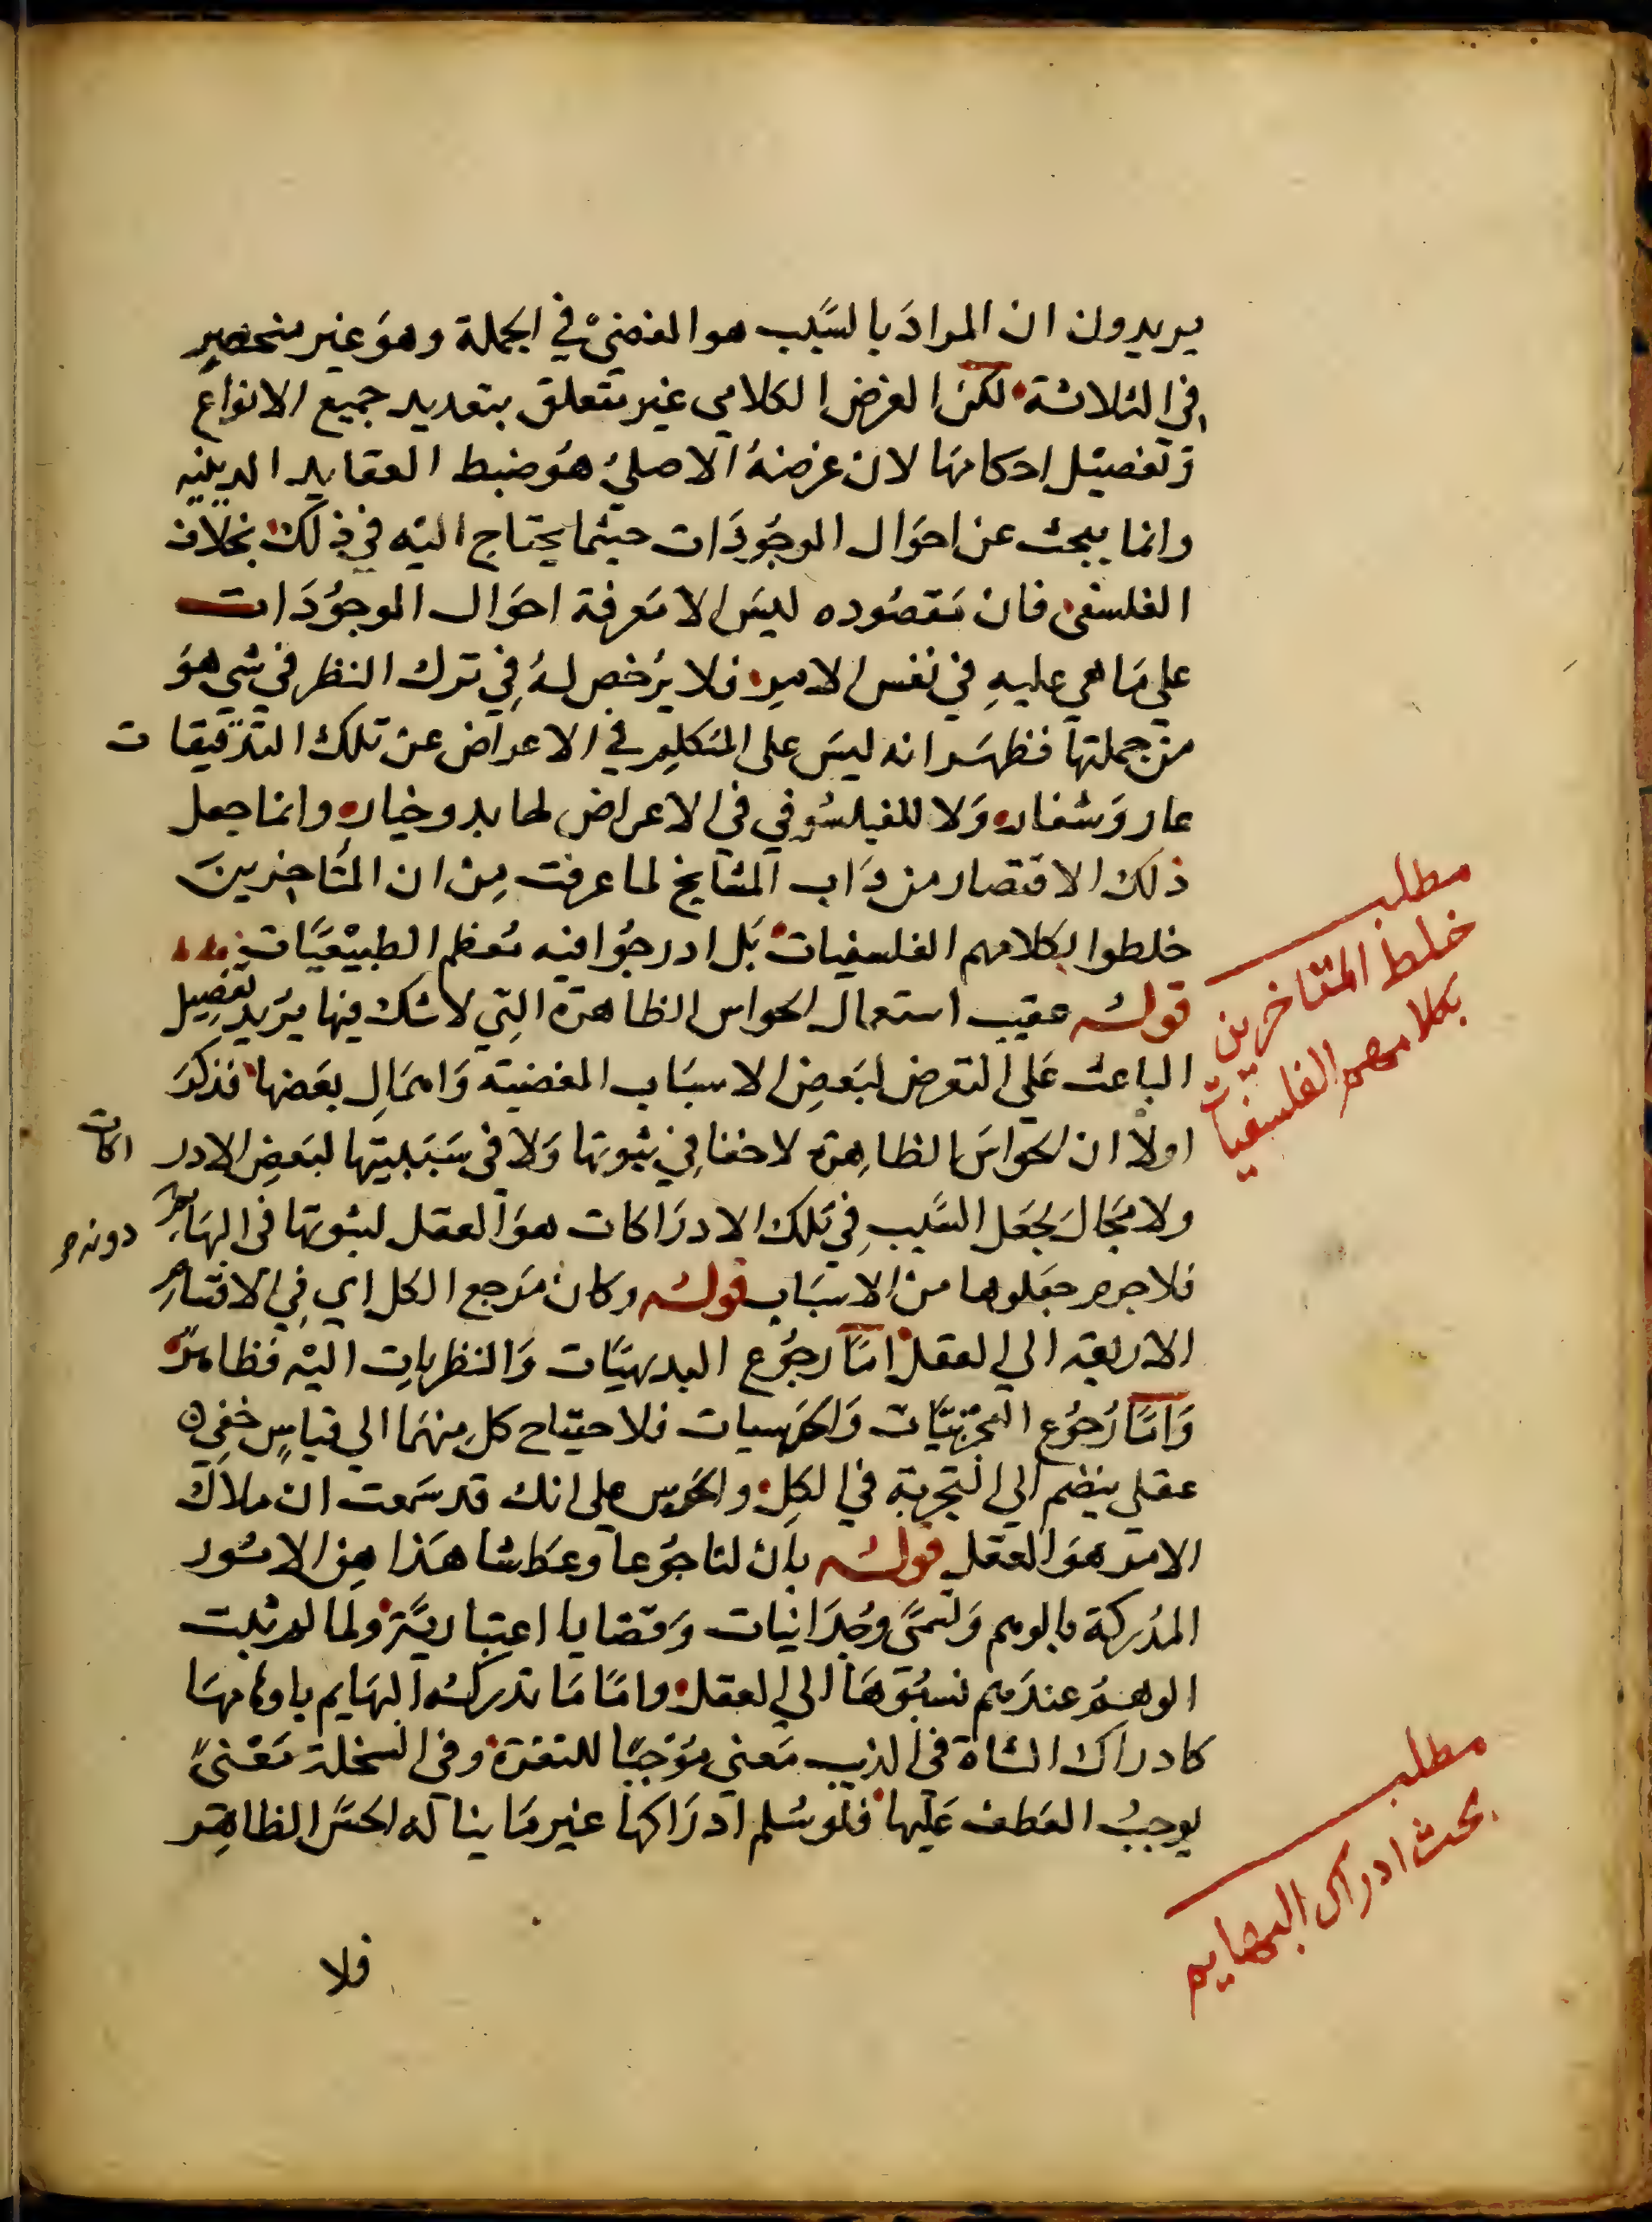 يريدون ان المرادَ بالسَّبب هو المفضيْ في الجملة وهوَ غير منحصرٍ
في الثلاثة لكنَ الغرض الكلامي غير متعلق بتعديد جميع الانواع
وَتفصيْل احكامهَا لان غرضهُ الاصليُ هوَ ضبط العقايد الدينيه
وانما يبحث عن احوَال الموجوُدَات حيثما يحتاج اليْه في ذلك بخلاف
الفلسفى فان مَقصُوده ليسَ الا مَعرفة احوَال الموجوُدَات
علي مَا هي عليهِ في نفس الامرِ فلا يُرخص لهُ فِي ترك النظر في شي هوَ
من جملتها فظهَر انه ليسَ على المتكلم في الاعراض عن تلك التدقيقات
عار وَشنار وَلا للفيلسُوفي في الاعراض لها بد وخيار وانما جعل
ذلك الاقتصار من دَاب المشايخ لما عرفت مِنْ ان المُتاخرينَ
خلطوا بكلامهم الفلسفيات بَل ادرجوُا فيه مُعظم الطبيْعيَّات
قولُه عقيب استعمال الحواس الظاهرة التِي لا شك فيها يرُيد تفصِيل
الباعث عَلى التعرض لبَعضِ الاسبَاب المفضية وَاهمَالِ بعَضها فذكرَ
اولاً ان الحوَاسَ الظاهِرة لا خفا فِي ثبوتها وَلا فى سَبَبيتِها لبَعضِ الادراكات
ولا مَجَالَ لجَعل السَّببِ فِي تلك الادرَاكات هوَ العقل لثبوتها فى البهَايم دونه
فلا جرم جَعَلوها من الاسبَاب قولُه وكان مَرجع الكل اي فِي الاقسَام
الاربعة الي العقل امَّا رجوُع البديهيَّات وَالنظرياتِ اليْه فظاهرٌ
وَامَّا رُجوُع التجربيَّات وَالحَدسيات فلاحتياح كل منهمَا الي قياسٍ خفي
عقلي ينضم الي التجربة في الكلِ والحَدس على انك قد سَمعت ان ملاك
الامر هوَ العقل قولُه بان لنا جوُعا وعَطشا هَذا مِن الامُور
المُدركة بالوهم وَتسمَّى وجدَانيات وَقضايا اعتباريَّة ولما لم يثبت
الوهمُ عندَهم نسبُوَهَا الي العقل وامَّا مَا تدركهُ البهَايم باوهامهَا
كادراك الشاة فى الذيب مَعنى مُوْجبًا للنفرَة وفى السخلة مَعْنىً
يوجبُ العَطف عَليها فلوَ سُلم ادرَاكها غير مَا يناله الحسُّ الظاهِر
فلا
مطلب
خلط المتاخرين
بكلامهم الفلسفيات
مطلب
بحث ادراك البهايم